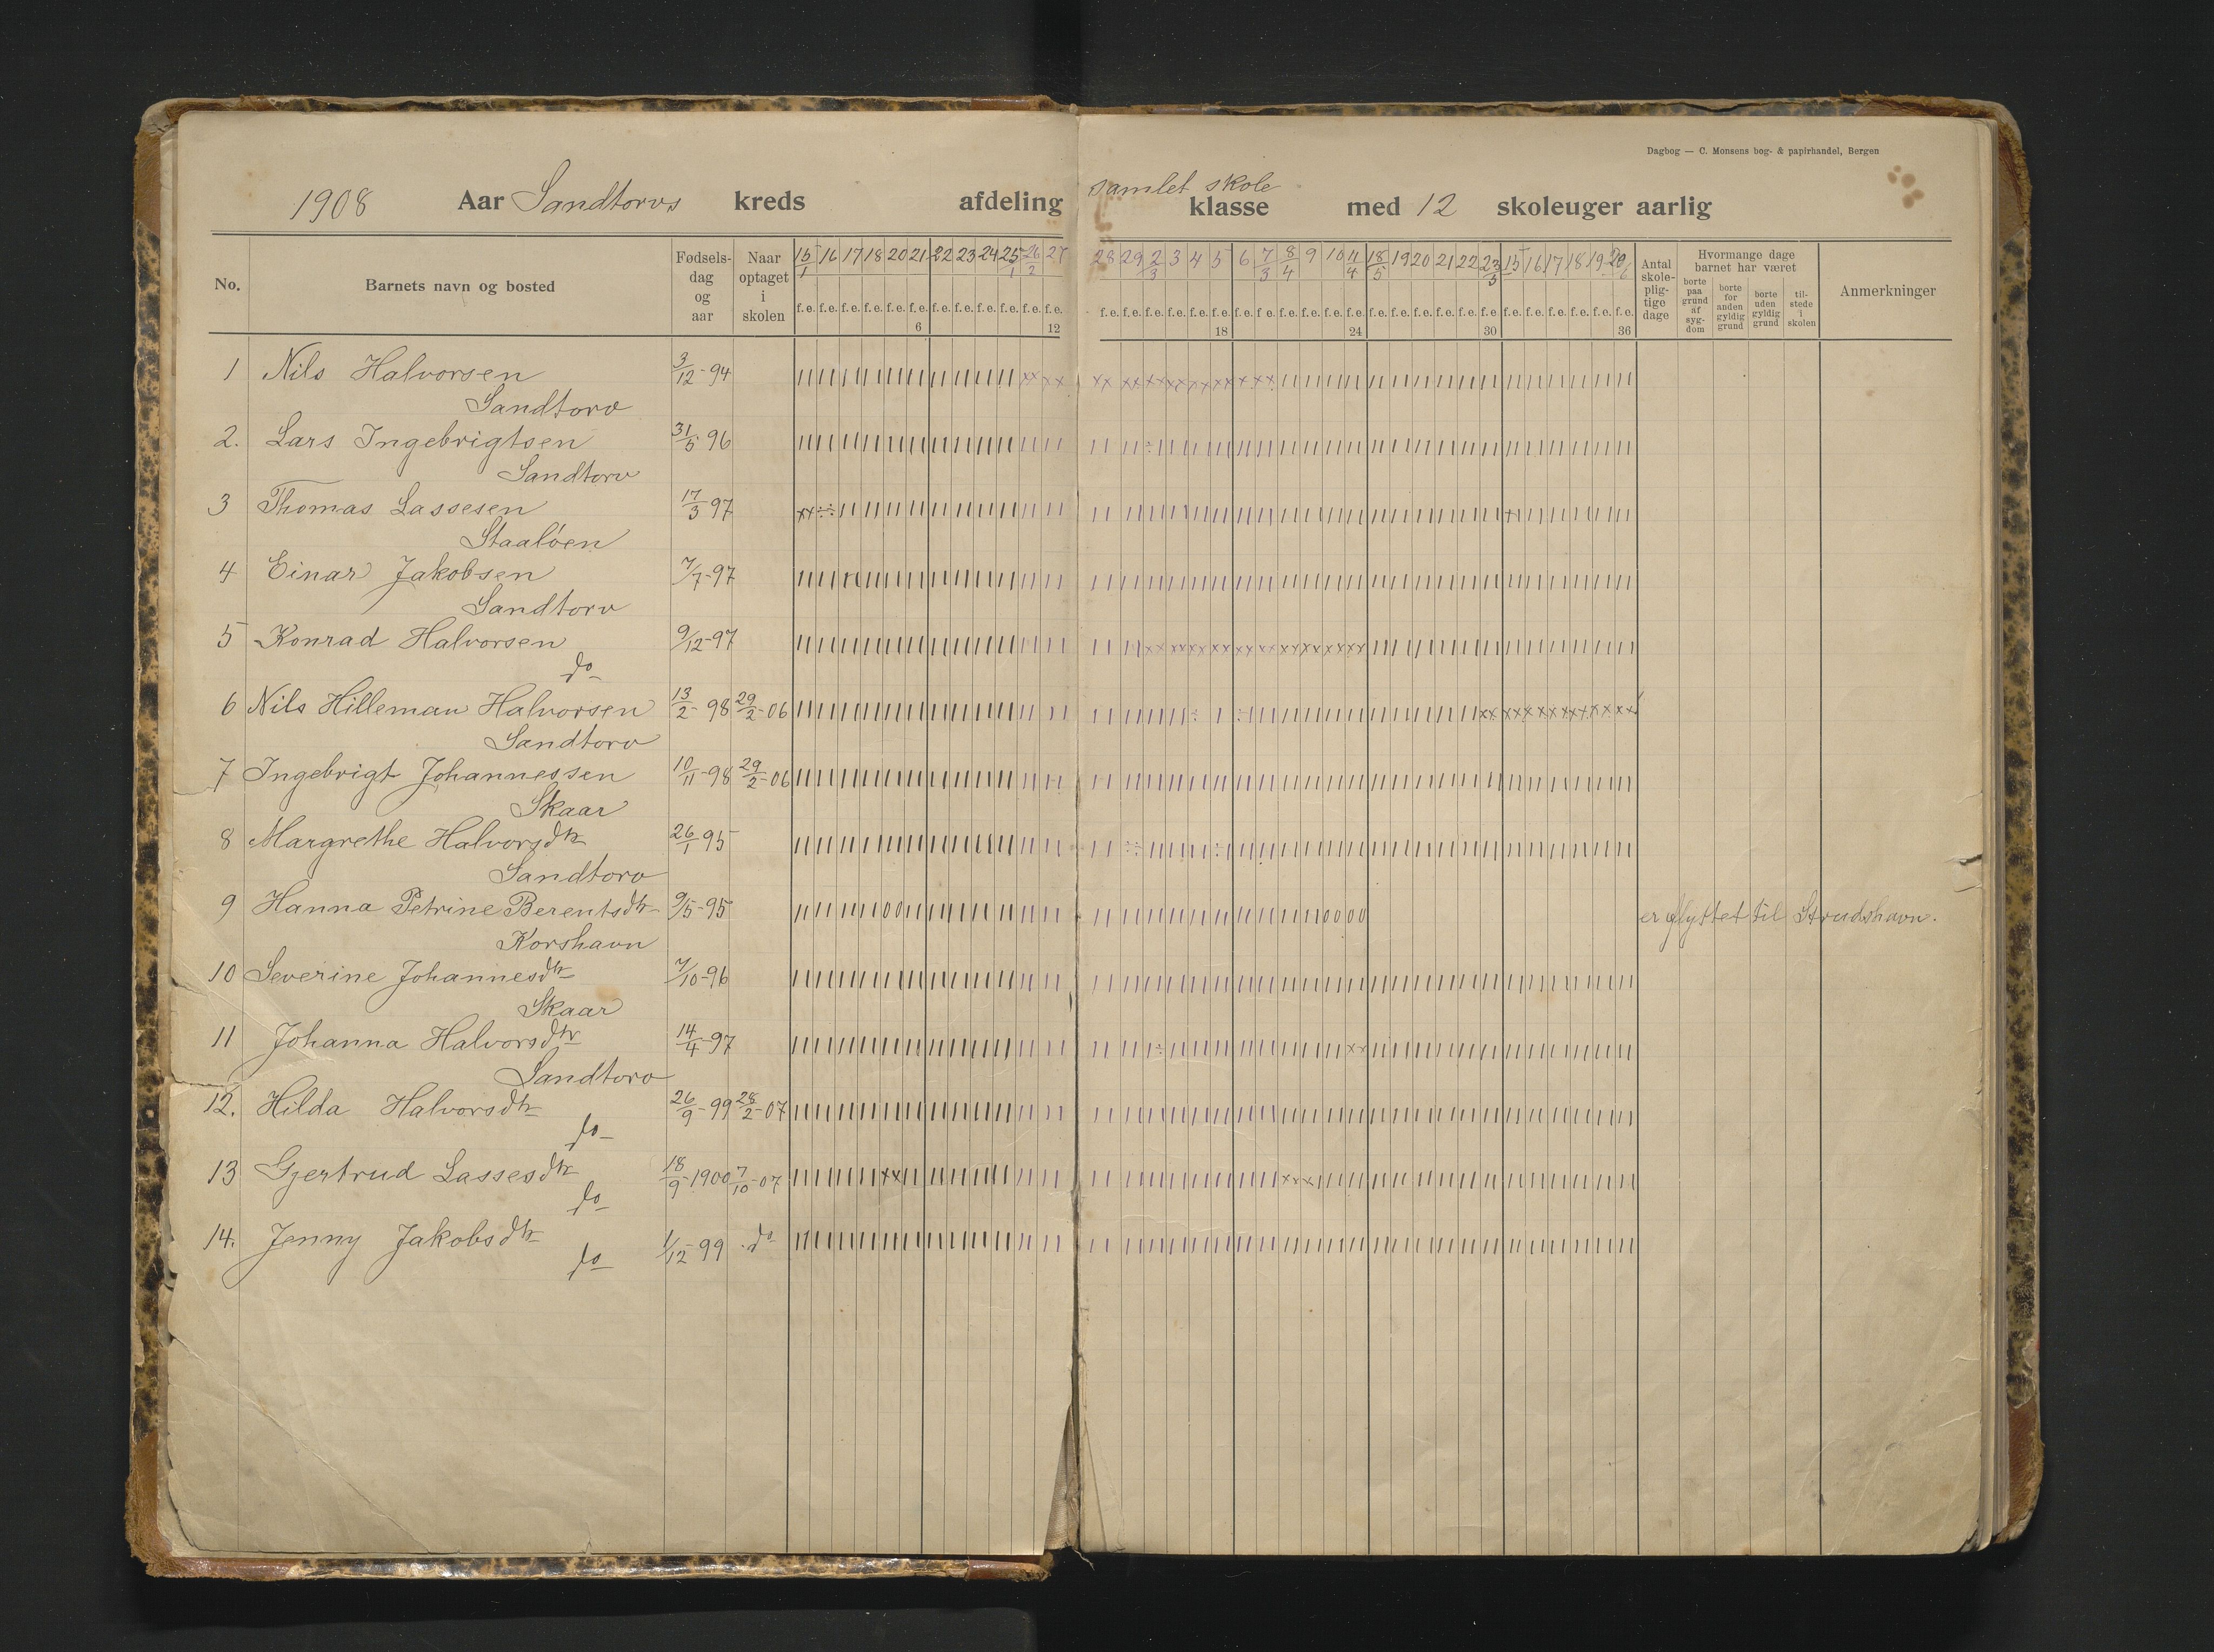 Dagbog — C. Monsens bog- & papirhandel, Bergen
1908 Aar Sandtorvs kreds afdeling samlet skole klasse med 12 skoleuger aarlig
No. Barnets navn og bosted Fødsels-dag og aar Naar optaget i skolen 15/1 16 17 18 20 21 22 23 24 25/1 26/2 27 28 29 2/3 3 4 5 6 7/3 8/4 9 10 11/4 18/5 19 20 21 22 23/5 15 16 17 18 19 20/6 Antal skole-plig-tige dage Hvormange dage barnet har været Anmerkninger
borte paa grund af syg-dom borte for anden gyldig grund borte uden gyldig grund til-stede i skolen
f.e. f.e. f.e. f.e. f.e. f.e. f.e. f.e. f.e. f.e. f.e. f.e. f.e. f.e. f.e. f.e. f.e. f.e. f.e. f.e. f.e. f.e. f.e. f.e. f.e. f.e. f.e. f.e. f.e. f.e. f.e. f.e. f.e. f.e. f.e. f.e.
6 12 18 24 30 36
1 Nils Halvorsen 3/12-94
Sandtorv
2. Lars Ingebrigtsen 31/5 96
Sandtorv
3 Thomas Lassesen 17/3 97
Staaløen
4 Einar Jakobsen 7/7-97
Sandtorv
5 Konrad Halvorsen 9/12-97
do
6 Nils Hilleman Halvorsen 13/2-98 29/2-06
Sandtorv
7 Ingebrigt Johannessen 10/11-98 29/2-06
Skaar
8 Margrethe Halvorsdtr 26/1 95
Sandtorv
9 Hanna Petrine Berentsdtr 9/5-95 er flyttet til Strudshavn.
Korshavn
10 Severine Johannesdtr 7/10-96
Skaar
11 Johanna Halvorsdtr 14/4-97
Sandtorv
12. Hilda Halvorsdtr 26/9-99 28/2-07
do
13 Gjertrud Lassesdtr 18/9-1900 7/10-07
do
14. Jenny Jakobsdtr 1/12 99 do
do